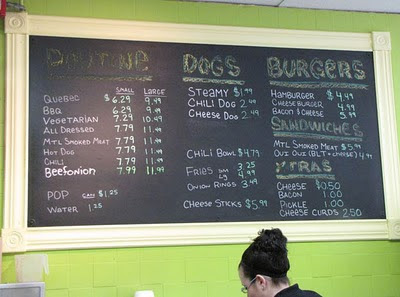 POUTINE
SMALL LARGE
QUEBEC $6.29 9.99
BBQ 6.29 9.99
VEGETARIAN 7.29 10.49
ALL DRESSED 7.79 11.99
MTL SMOKED MEAT 7.79 11.99
HOT DOG 7.79 11.99
CHILI 7.79 11.99
BEEFONION 7.99 11.99
POP CANS $1.25
WATER 1.25
DOGS
STEAMY $1.99
CHILI DOG 2.49
CHEESE DOG 2.49
CHILI BOWL $4.79
FRIES SM 3.25
LG 4.99
ONION RINGS 3.49
CHEESE STICKS $5.99
BURGERS
HAMBURGER $4.49
CHEESEBURGER 4.99
BACON & CHEESE 5.99
SANDWICHES
MTL SMOKED MEAT $5.99
OUI OUI (BLT + CHEESE) 4.99
XTRAS
CHEESE $0.50
BACON 1.00
PICKLE 1.00
CHEESE CURDS 2.50